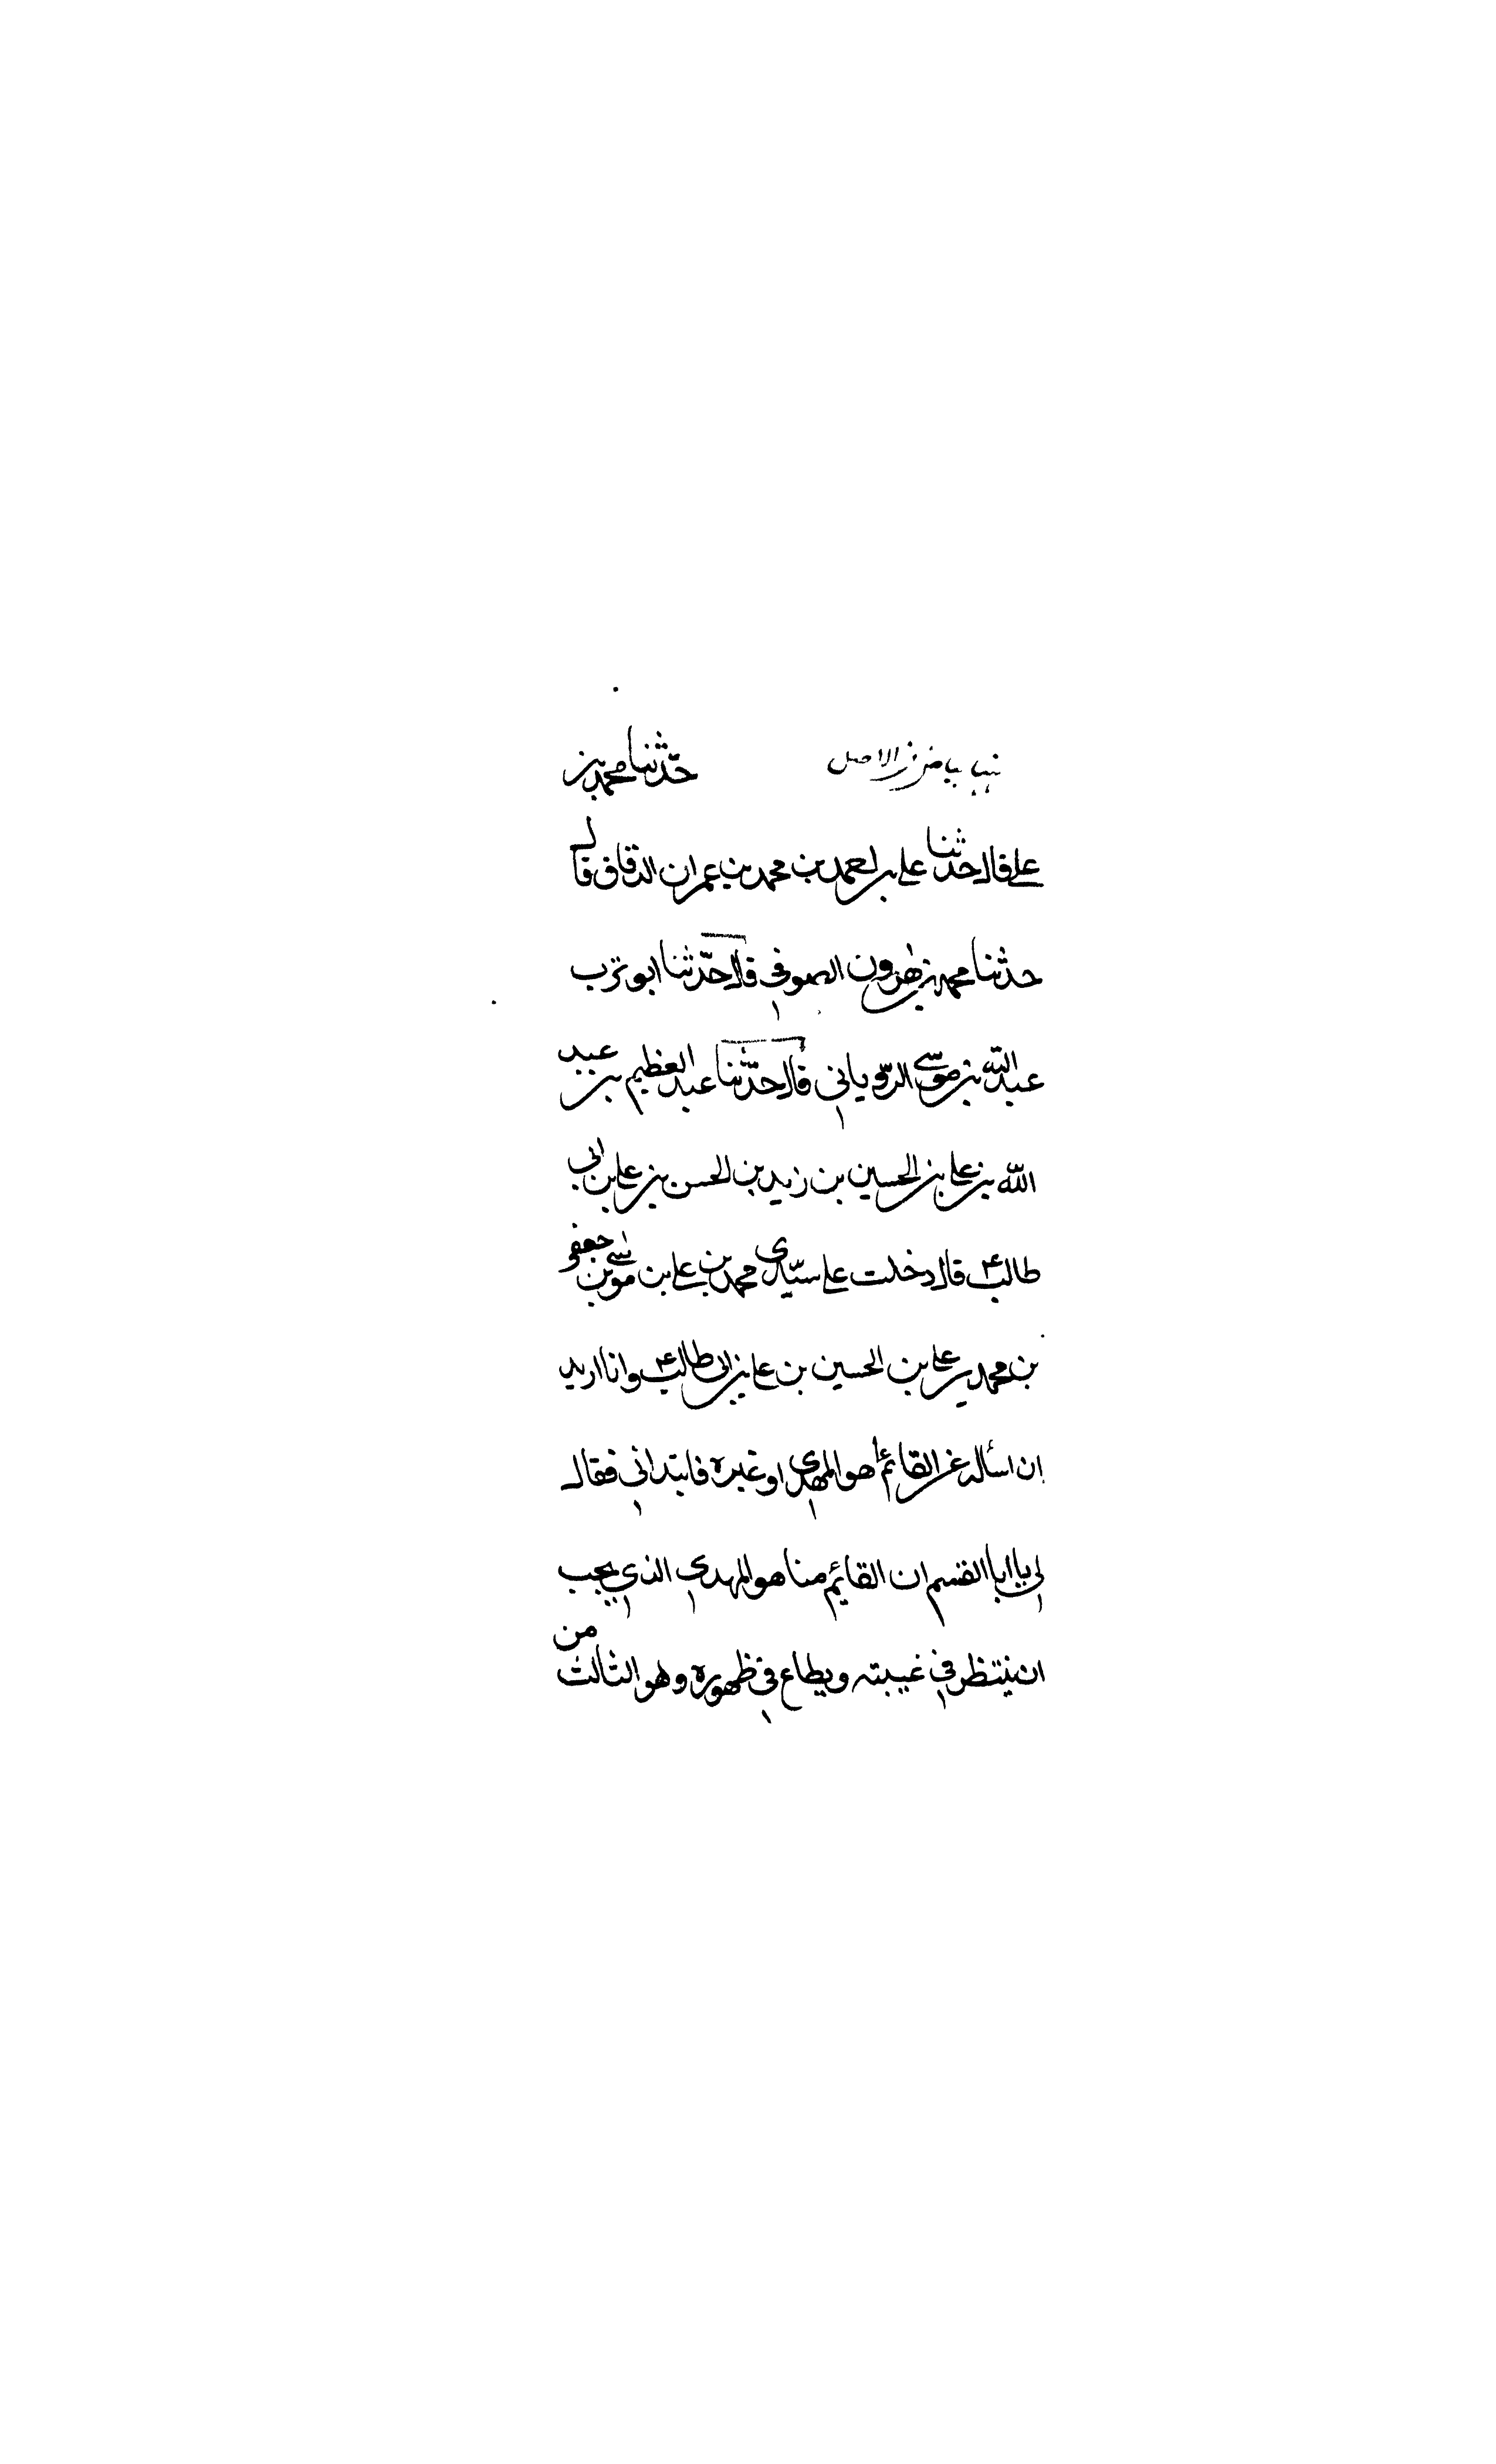 بياض في الاصل حدّثنا محمد بن
علي قال حدثنا علي بن احمد بن محمد بن عمران الدقاق قال
حدثنا محمد بن هرون الصوفي قال حدّثنا ابو ترب
عبد الله بن موسى الرّوياني قال حدّثنا عبد العظيم بن عبيد
الله بن علي بن الحسين بن زيد بن الحسن بن علي بن ابي
طالب ع قال دخلت على سيّدي محمد بن علي بن موسى بن جعفر
بن محمد بن علي بن الحسين بن علي بن ابي طالب ع وانا اريد
ان اسأله عن القائم أهو المهدي او غيره فابتداني فقال
لي يا ابا القسم ان القايم منا هو المهدي الذي يجب
ان ينتظر في غيبته ويطاع في ظهوره وهو الثالث من